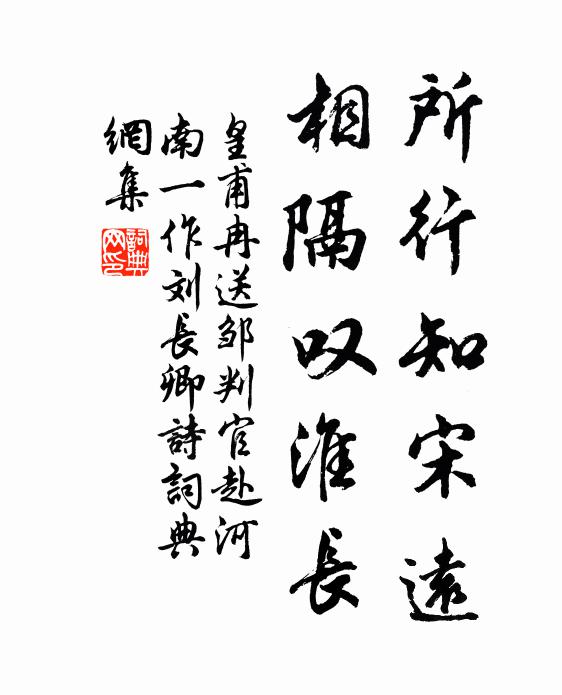 所行知宋遠
相隔叹淮長
皇甫冉送邹判官赴河
南一作刘長卿詩詞典
網集
詞典
网印